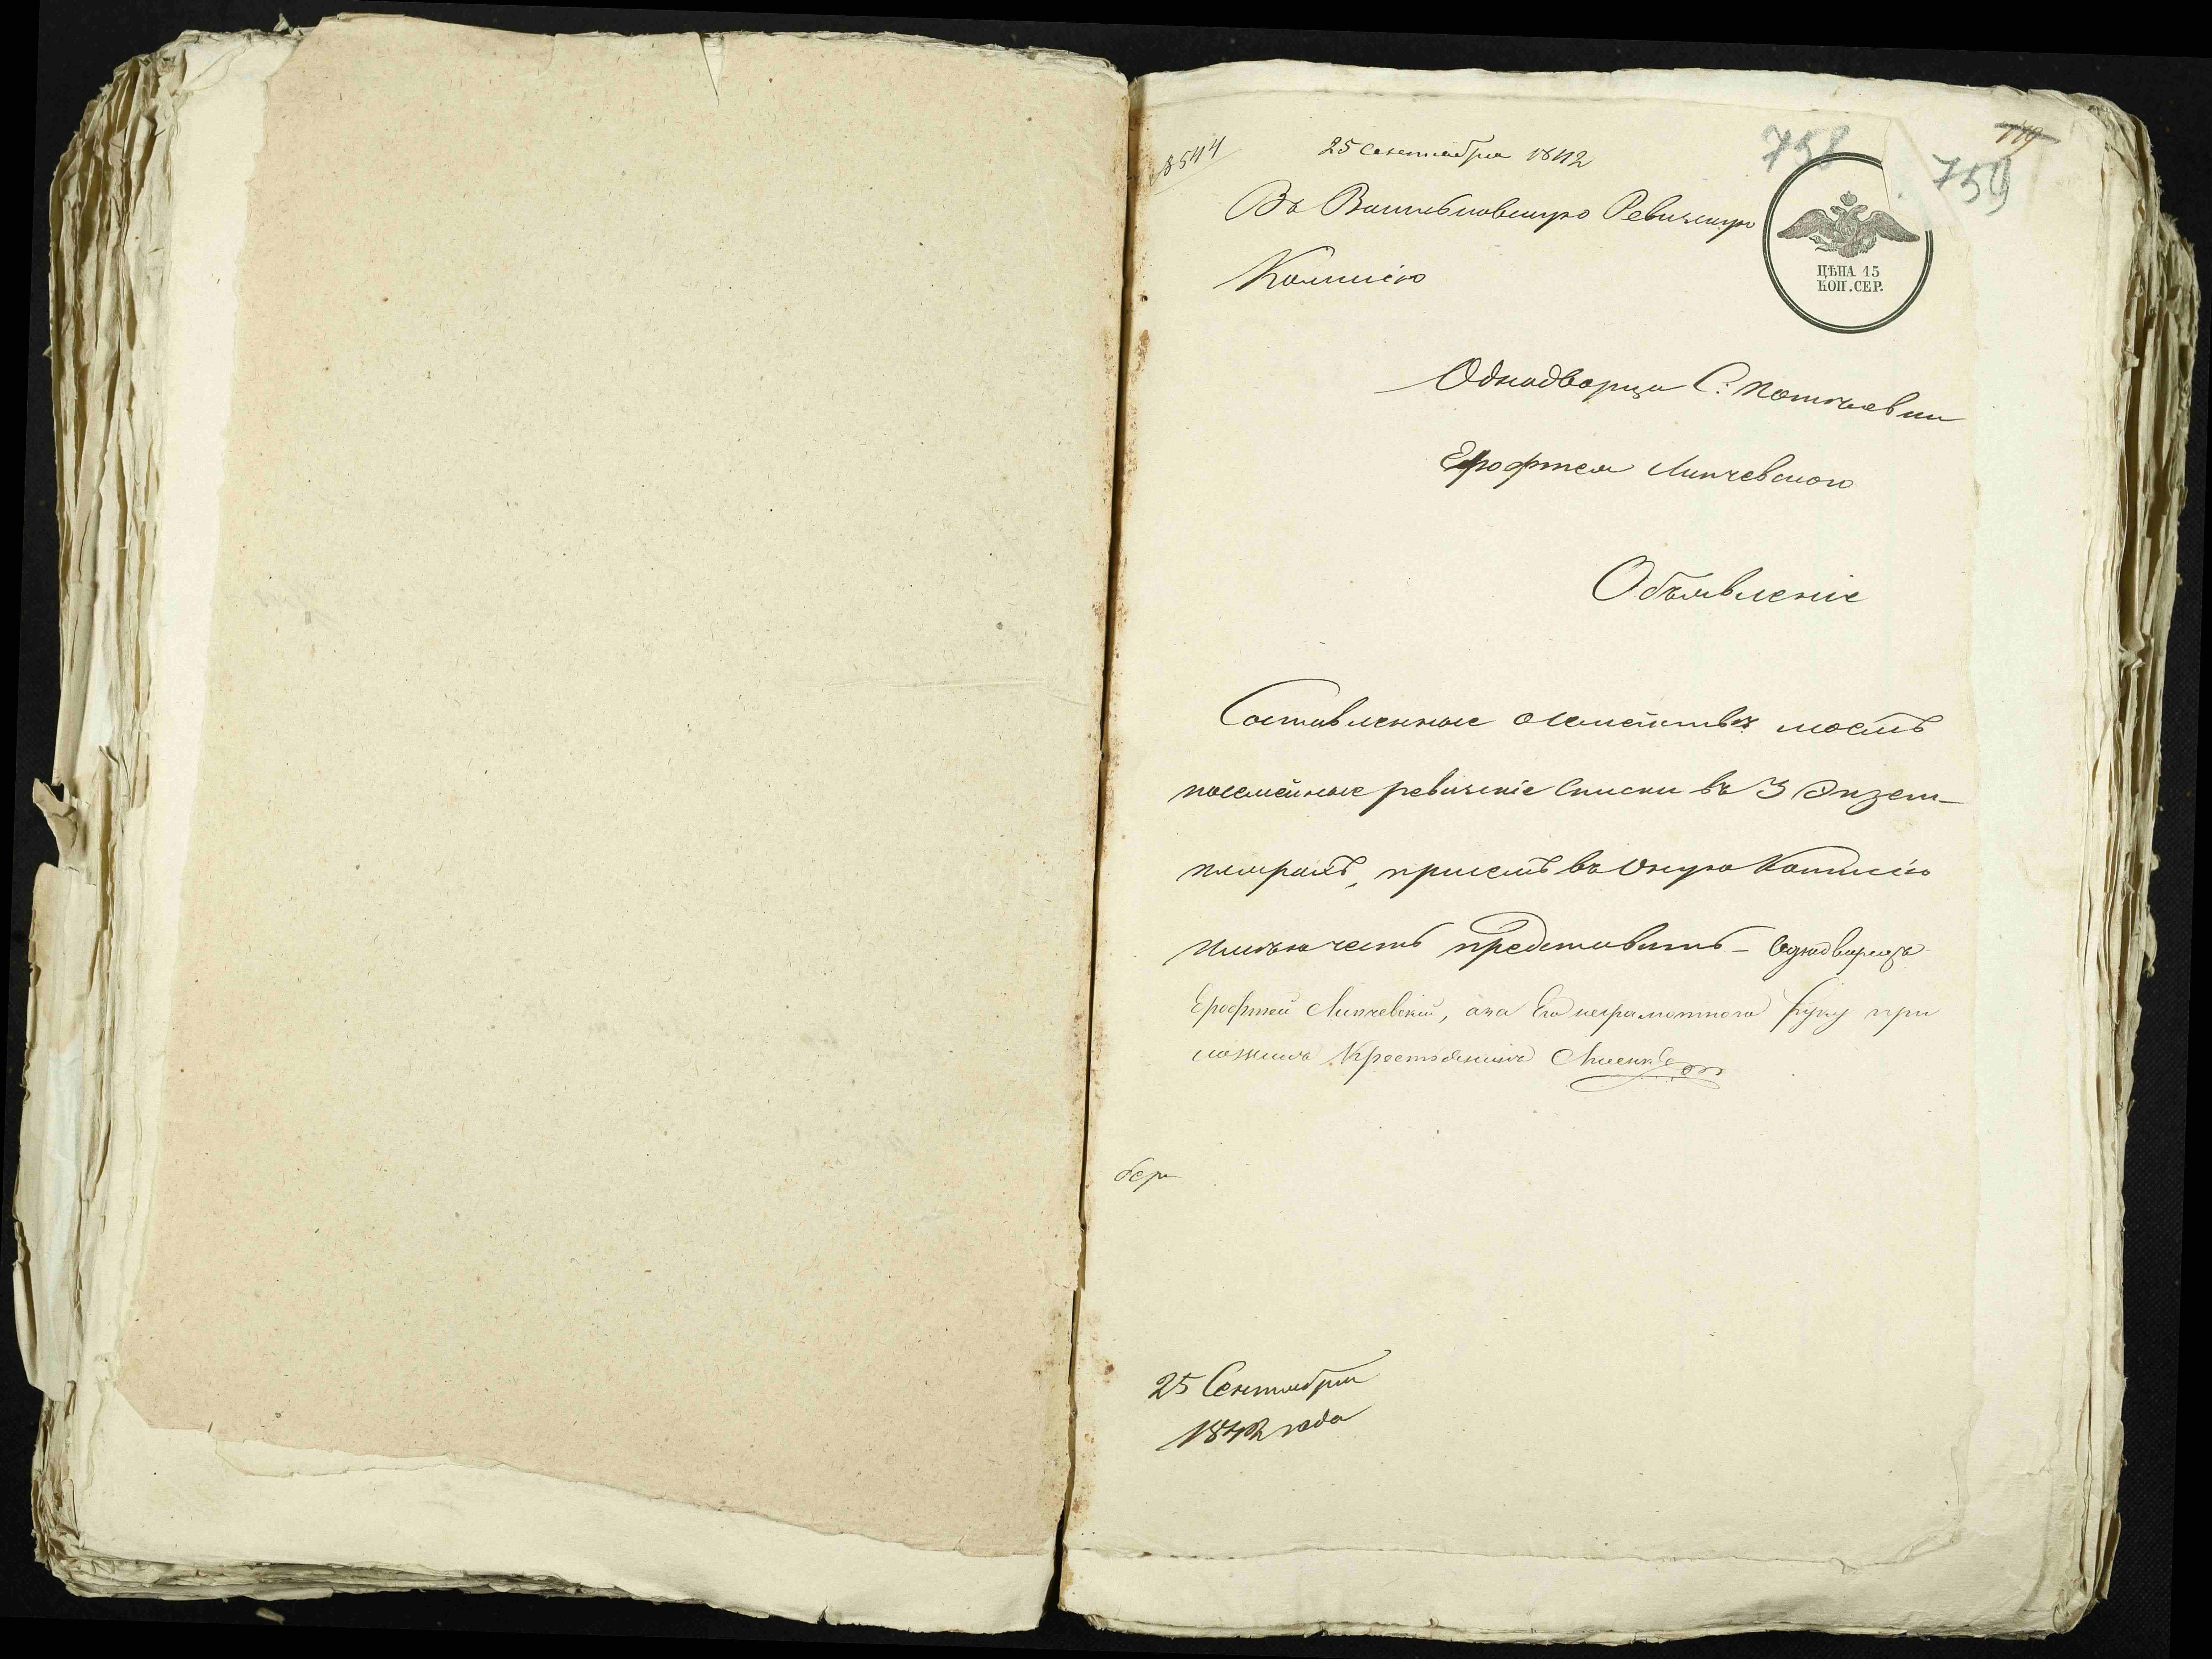 8544
25 Сентября 1842
758
759
Въ Васильковскую Ревизскую
Комисію
ЦѢНА 15
КОП. СЕР.
Однодворца С:
Ерофтея Липчевского
Объявленіе
Составленные о семействѣ моемъ
посемейные ревизскіе Списки въ 3 Экзем-
плярахъ, присемъ въ Оную Комисію
имѣю честь представить - Однодворецъ
Ерофтей Липчевскій, аза Его неграмотного руку при
ложилъ Крестьянинъ
бер
25 Сентября
1842 года